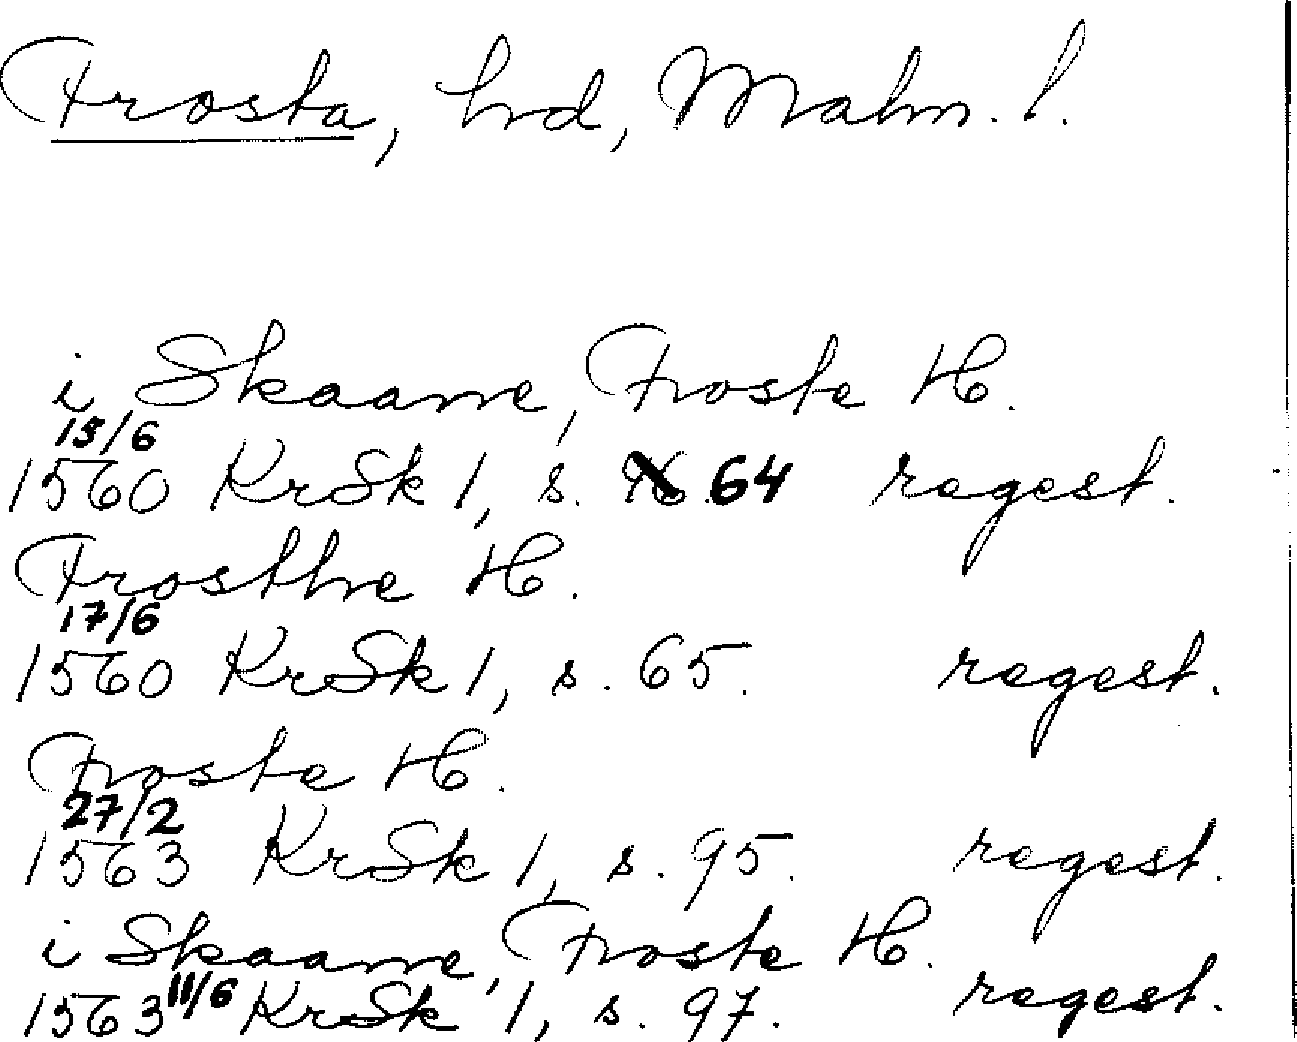 Frosta, hrd, Malm. l.
i Skaanne, Froste H.
15/6
1560 KrSk 1, s. 64 regest.
Frosthre H.
17/6
1560 KrSk 1, s. 65. regest.
Froste H.
27/2
1563 KrSk 1, s. 95. regest.
i Skaanne, Froste H.
1563 11/6 KrSk 1, s. 97. regest.